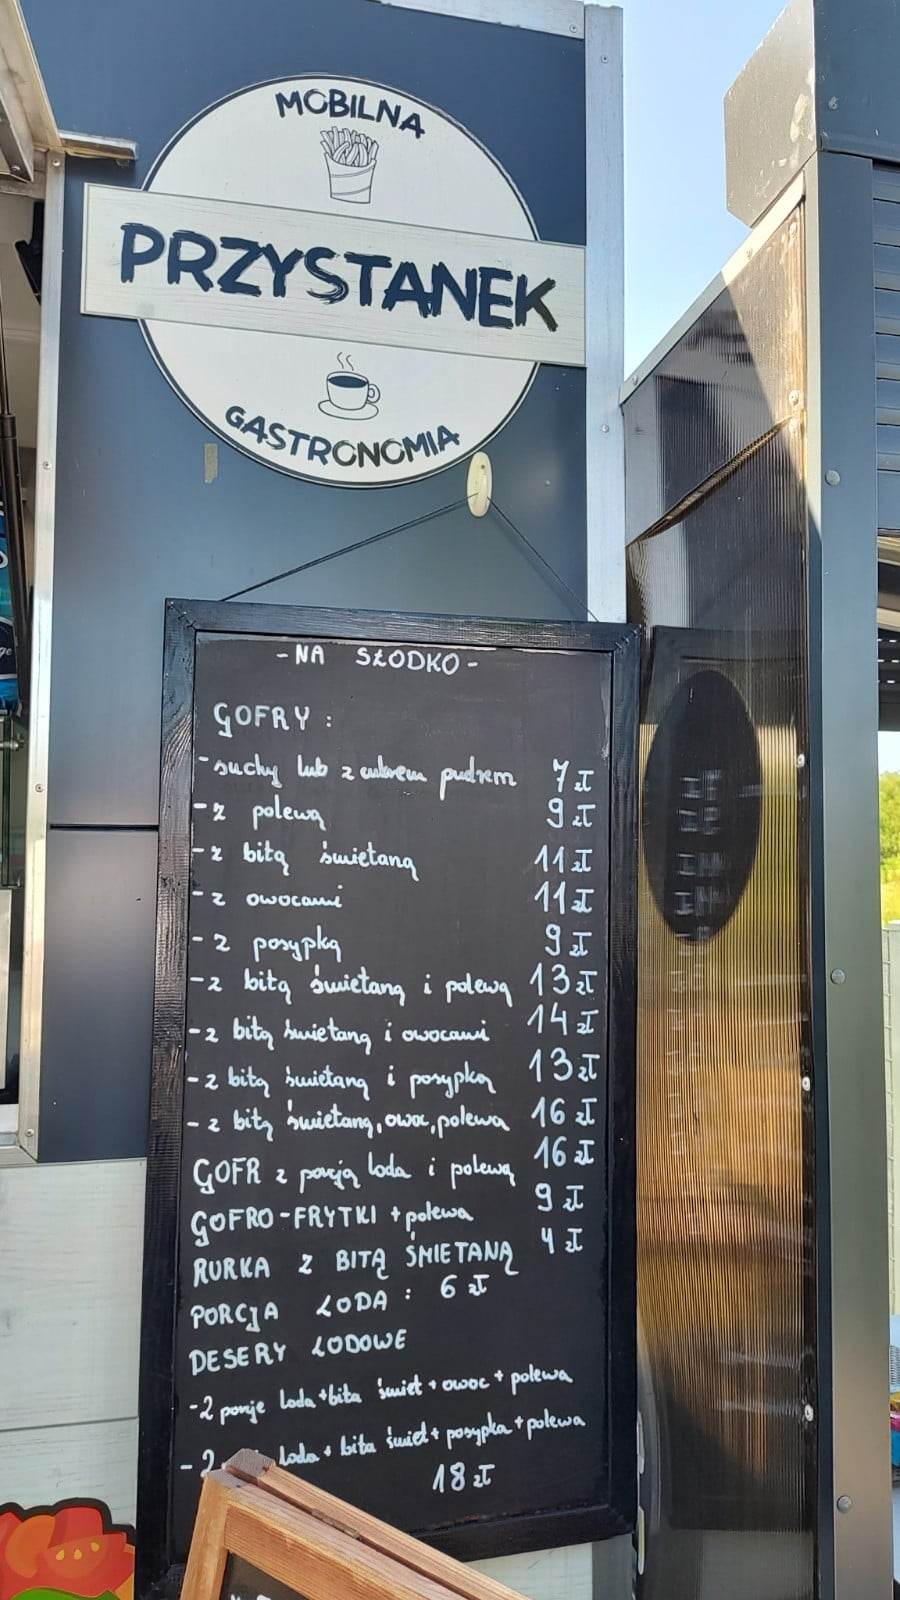 MOBILNA
PRZYSTANEK
GASTRONOMIA
- NA SŁODKO -
GOFRY :
- suchy lub z cukrem pudrem 7 zł
- z polewą 9 zł
- z bitą śmietaną 11 zł
- z owocami 11 zł
- z posypką 9 zł
- z bitą śmietaną i polewą 13 zł
- z bitą śmietaną i owocami 14 zł
- z bitą śmietaną i posypką 13 zł
- z bitą śmietaną, owoc, polewa 16 zł
GOFR z porcją loda i polewą 16 zł
GOFRO-FRYTKI + polewa 9 zł
RURKA Z BITĄ ŚMIETANĄ 4 zł
PORCJA LODA : 6 zł
DESERY LODOWE
- 2 porcje loda + bita śmiet + owoc + polewa
- 2 loda + bita śmiet + posypka + polewa
18 zł